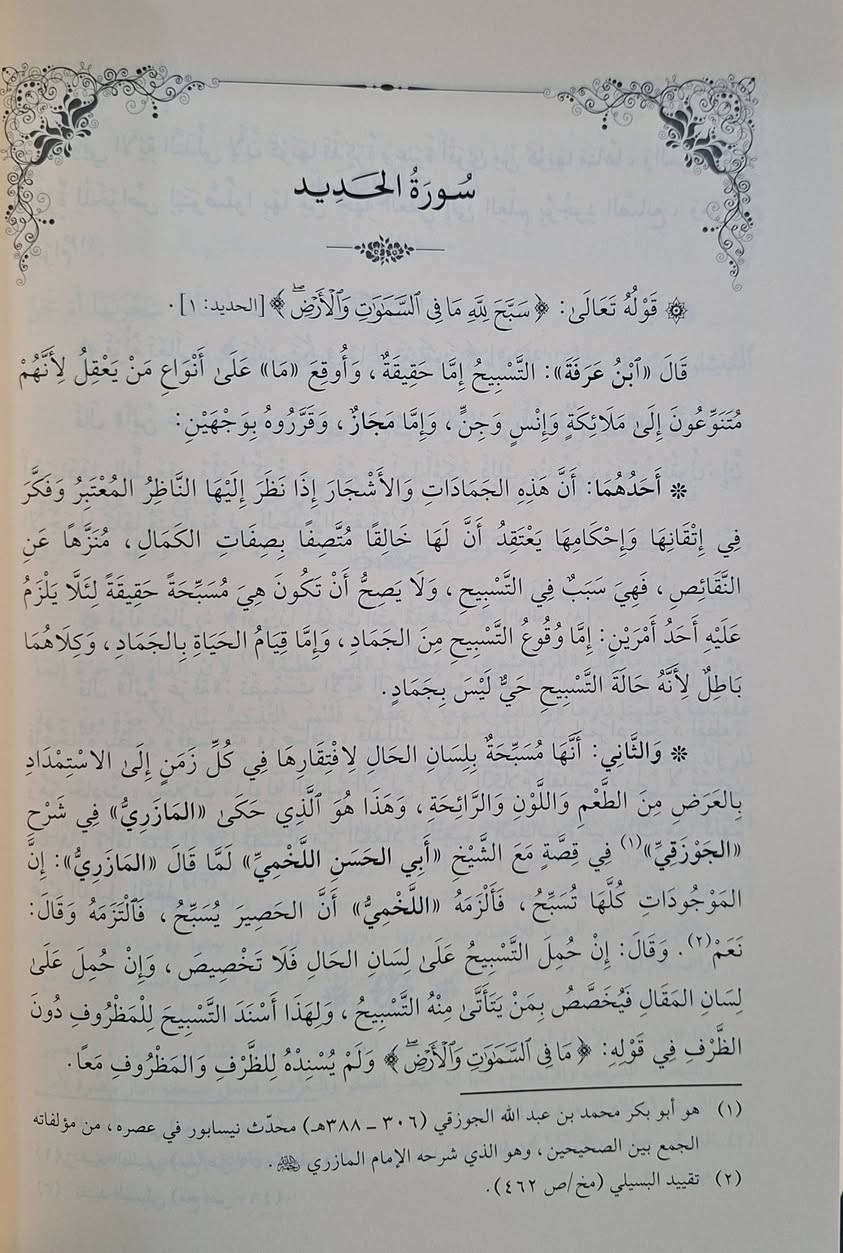 سُورَةُ الحَدِيد
قَوْلُهُ تَعَالَىٰ: ﴿سَبَّحَ لِلَّهِ مَا فِي السَّمَٰوَٰتِ وَالْأَرْضِۖ﴾ [الحديد: ١].
قَالَ «ٱبْنُ عَرَفَةَ»: التَّسْبِيحُ إِمَّا حَقِيقَةٌ، وَأُوقِعَ «مَا» عَلَىٰ أَنْوَاعِ مَنْ يَعْقِلُ لِأَنَّهُمْ
مُتَنَوِّعُونَ إِلَىٰ مَلَائِكَةٍ وَإِنْسٍ وَجِنٍّ، وَإِمَّا مَجَازٌ، وَقَرَّرُوهُ بِوَجْهَيْنِ:
* أَحَدُهُمَا: أَنَّ هَذِهِ الجَمَادَاتِ وَالأَشْجَارَ إِذَا نَظَرَ إِلَيْهَا النَّاظِرُ المُعْتَبِرُ وَفَكَّرَ
فِي إِتْقَانِهَا وَإِحْكَامِهَا يَعْتَقِدُ أَنَّ لَهَا خَالِقًا مُتَّصِفًا بِصِفَاتِ الكَمَالِ، مُنَزَّهًا عَنِ
النَّقَائِصِ، فَهِيَ سَبَبٌ فِي التَّسْبِيحِ، وَلَا يَصِحُّ أَنْ تَكُونَ هِيَ مُسَبِّحَةً حَقِيقَةً لِئَلَّا يَلْزَمُ
عَلَيْهِ أَحَدُ أَمْرَيْنِ: إِمَّا وُقُوعُ التَّسْبِيحِ مِنَ الجَمَادِ، وَإِمَّا قِيَامُ الحَيَاةِ بِالجَمَادِ، وَكِلَاهُمَا
بَاطِلٌ لِأَنَّهُ حَالَةَ التَّسْبِيحِ حَيٌّ لَيْسَ بِجَمَادٍ.
* وَالثَّانِي: أَنَّهَا مُسَبِّحَةٌ بِلِسَانِ الحَالِ لِافْتِقَارِهَا فِي كُلِّ زَمَنٍ إِلَىٰ الاسْتِمْدَادِ
بِالعَرَضِ مِنَ الطَّعْمِ وَاللَّوْنِ وَالرَّائِحَةِ، وَهَذَا هُوَ ٱلَّذِي حَكَىٰ «المَازَرِيُّ» فِي شَرْحِ
«الجَوْزَقِيِّ»(١) فِي قِصَّةٍ مَعَ الشَّيْخِ «أَبِي الحَسَنِ اللَّخْمِيِّ» لَمَّا قَالَ «المَازَرِيُّ»: إِنَّ
المَوْجُودَاتِ كُلَّهَا تُسَبِّحُ، فَأَلْزَمَهُ «اللَّخْمِيُّ» أَنَّ الحَصِيرَ يُسَبِّحُ، فَٱلْتَزَمَهُ وَقَالَ:
نَعَمْ(٢). وَقَالَ: إِنْ حُمِلَ التَّسْبِيحُ عَلَىٰ لِسَانِ الحَالِ فَلَا تَخْصِيصَ، وَإِنْ حُمِلَ عَلَىٰ
لِسَانِ المَقَالِ فَيُخَصَّصُ بِمَنْ يَتَأَتَّىٰ مِنْهُ التَّسْبِيحُ، وَلِهَذَا أَسْنَدَ التَّسْبِيحَ لِلْمَظْرُوفِ دُونَ
الظَّرْفِ فِي قَوْلِهِ: ﴿مَا فِي السَّمَٰوَٰتِ وَالْأَرْضِۖ﴾ وَلَمْ يُسْنِدْهُ لِلظَّرْفِ وَالمَظْرُوفِ مَعًا.
(١) هو أبو بكر محمد بن عبد الله الجوزقي (٣٠٦ - ٣٨٨هـ) محدّث نيسابور في عصره، من مؤلفاته
الجمع بين الصحيحين، وهو الذي شرحه الإمام المازري ﵀.
(٢) تقييد البسيلي (مخ/ص ٤٦٢).